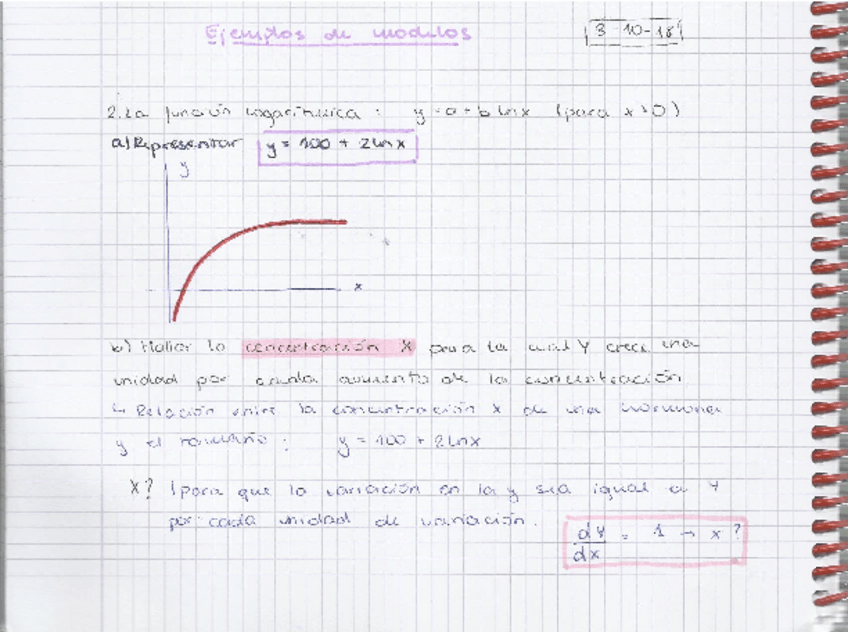 Ejemplos de modelos
3-10-18
2. La función logarítmica : y = a + b lnx (para x>0)
a) Representar y = 100 + 2lnx
y
x
b) Hallar la concentración X para la cual Y crece una
unidad por cada aumento de la concentración
↳ Relación entre la concentración x de una hormona
y el tamaño : y = 100 + 2lnx
X? (para que la variación en la y sea igual a 1
por cada unidad de variación.
dY/dx = 1 → x?